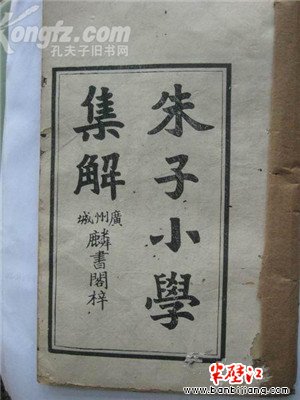 Kongfz.com
孔夫子旧书网
朱子小學
集解
廣州城
麟書閣梓
半壁江
www.banbijiang.com